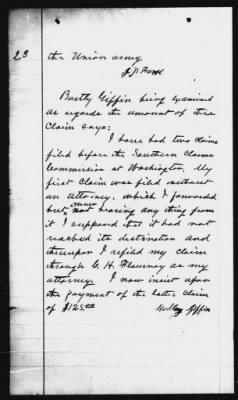 23
the Union army
J. P. Fard
Bartly Giffin being examined
as regards the amount of this
Claim says:
I have had two claims
filed before the Southern Claims
Commission at Washington. My
first claim was filed without
an attorney, which I forwarded
but, not hearing any thing from
it I supposed that it had not
reached its destination and
thereupon I refiled my claim
through C. H. Flournoy as my
attorney. I now insist upon
the payment of the latter claim
of $125.00
Bartley Giffin